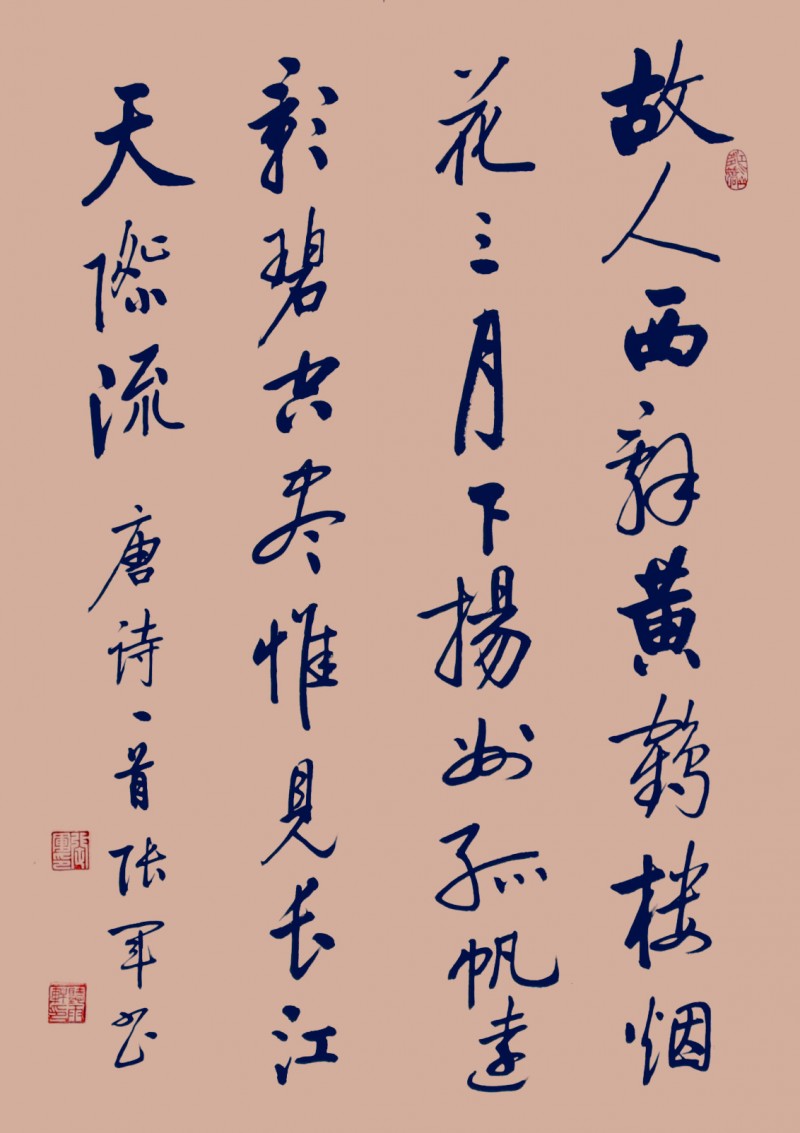 故人西辞黄鹤楼烟
花三月下揚州孤帆远
影碧空尽惟见长江
天際流 唐诗一首张军书